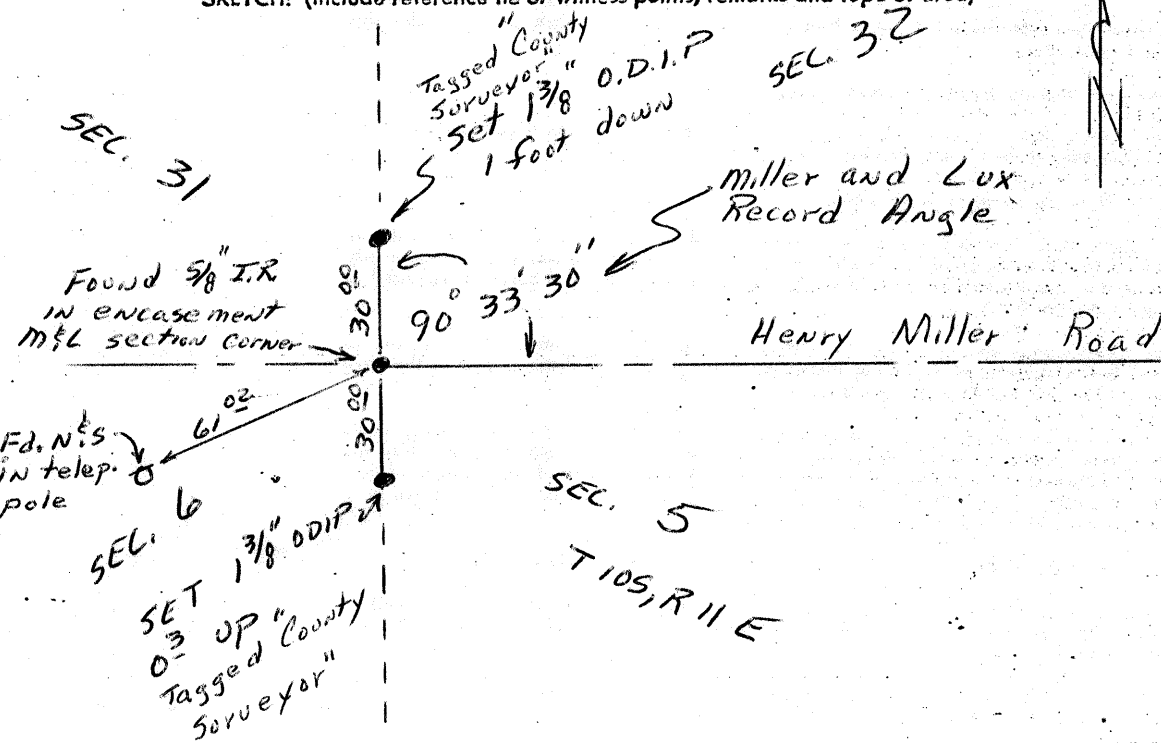 SKETCH: (Include reference tie or witness points, remarks and type of area)
Tagged "County
Surveyor"
Set 1 3/8" O.D.I.P
1 foot down
SEC. 32
N
SEC. 31
Miller and Lux
Record Angle
Found 5/8" I.R.
IN encasement
M&L section corner
30 00
90° 33' 30"
Henry Miller Road
61 02
30 00
Fd. N&S
IN telep.
pole
SEC. 6
SEC. 5
T 10S, R 11 E
SET 1 3/8" ODIP
0 3 UP
Tagged "County
Surveyor"